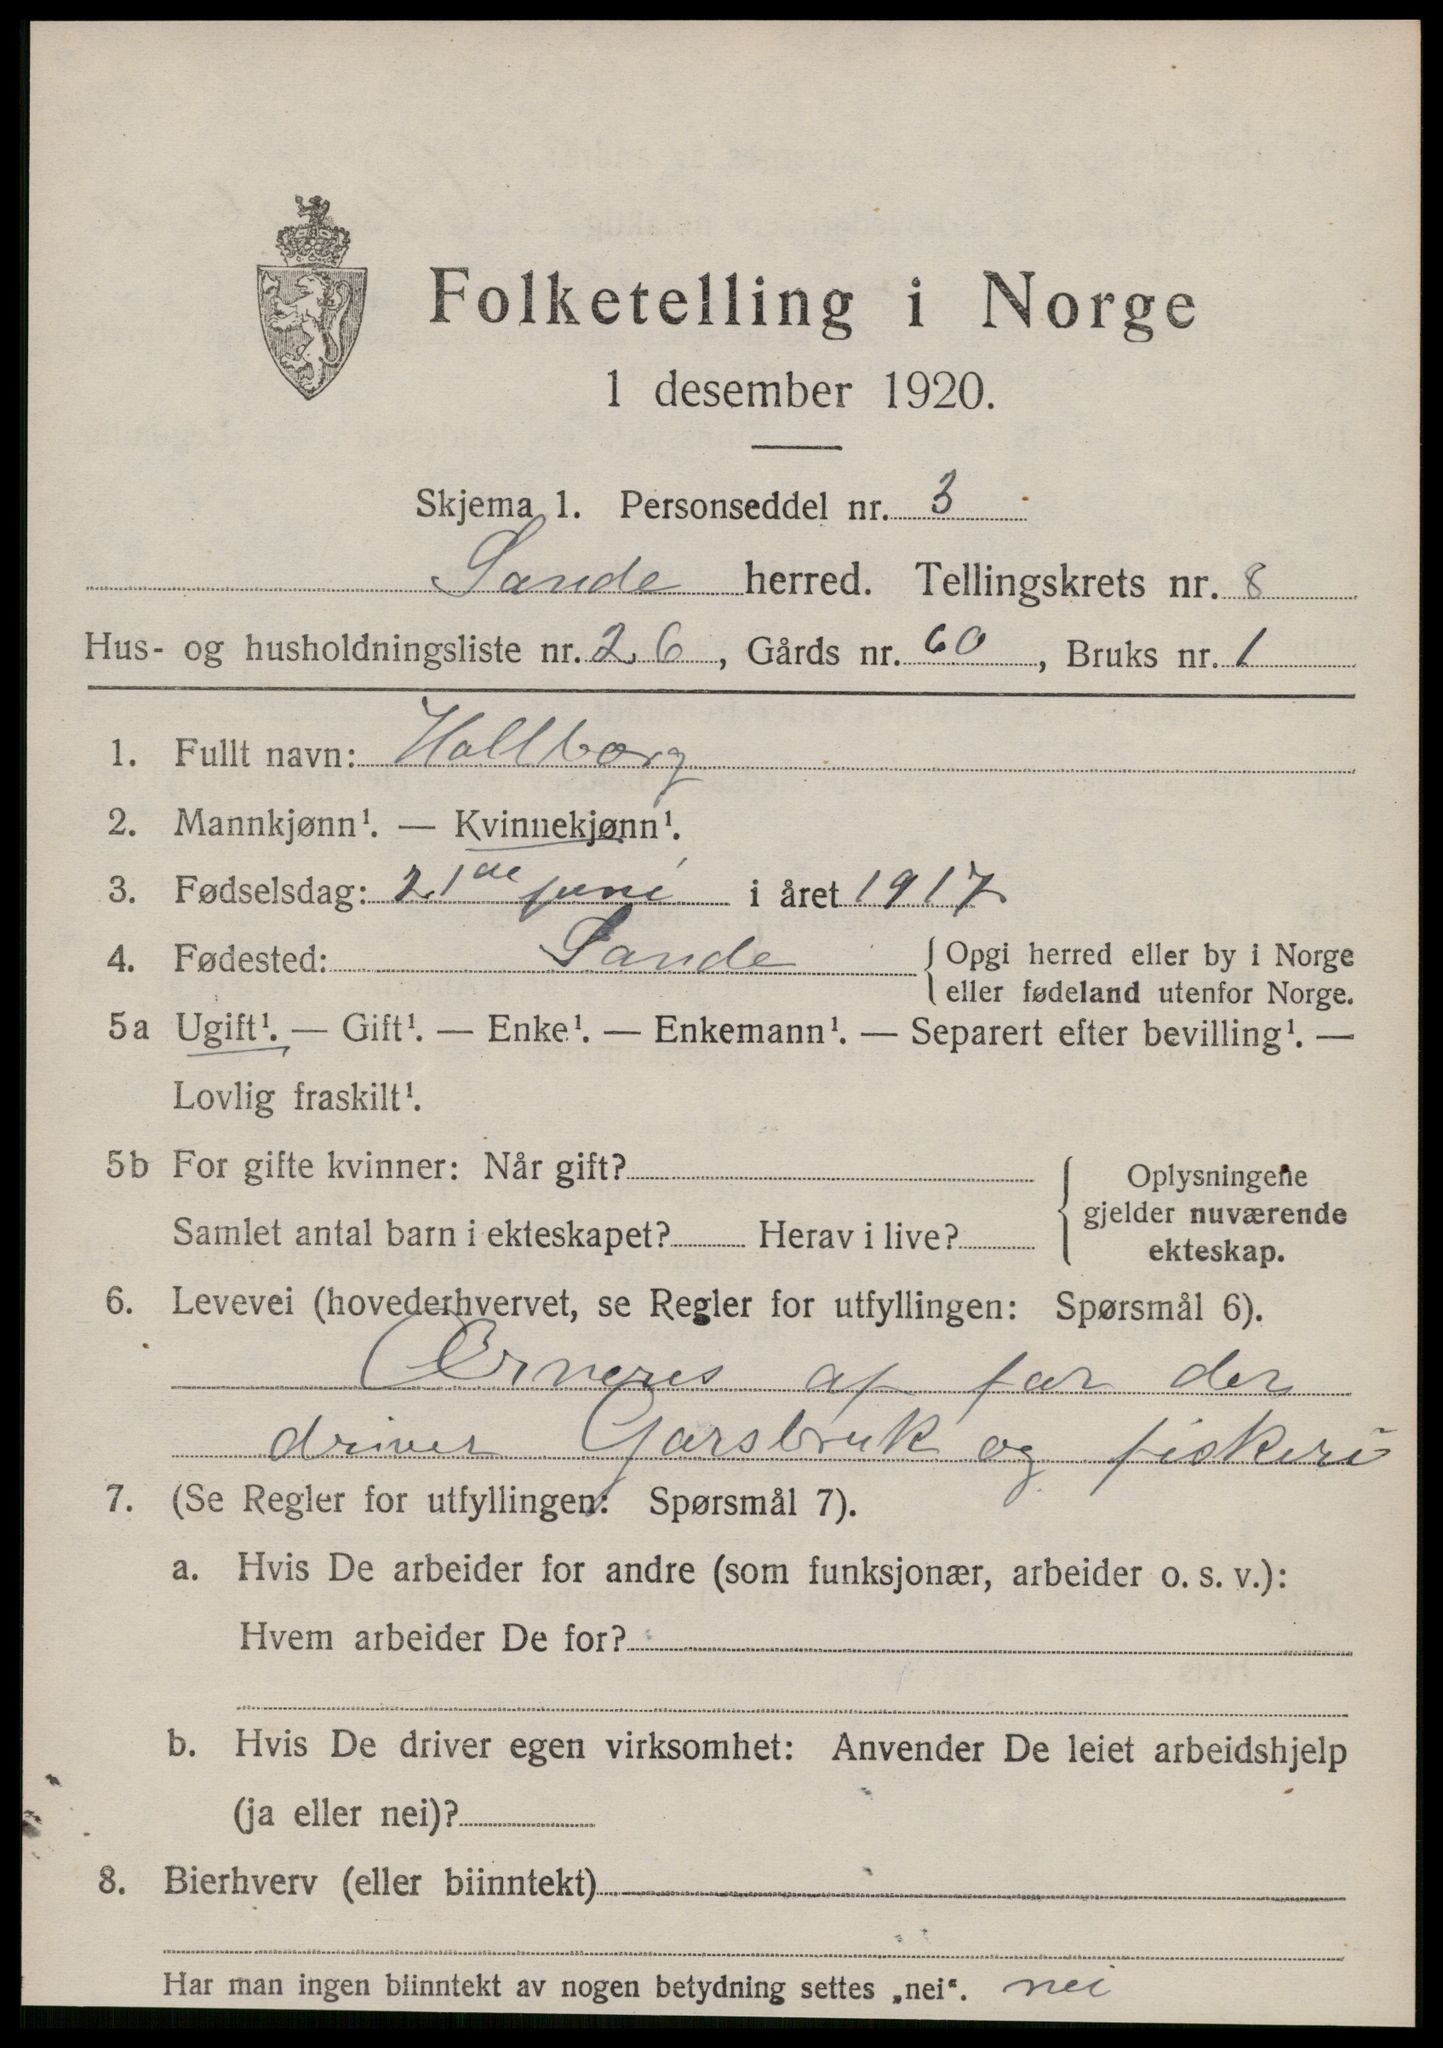 Folketelling i Norge
1 desember 1920.
Skjema 1. Personseddel nr. 3
Sande herred. Tellingskrets nr. 8
Hus- og husholdningsliste nr. 26, Gårds nr. 60, Bruks nr. 1
1. Fullt navn: Hallborg
2. Mannkjønn¹. — Kvinnekjønn¹.
3. Fødselsdag: 21de juni i året 1917
4. Fødested: Sande { Opgi herred eller by i Norge
eller fødeland utenfor Norge.
5a Ugift¹. — Gift¹. — Enke¹. — Enkemann¹. — Separert efter bevilling¹. —
Lovlig fraskilt¹.
5b For gifte kvinner: Når gift?
Samlet antal barn i ekteskapet? Herav i live?
{ Oplysningene
gjelder nuværende
ekteskap.
6. Levevei (hovederhvervet, se Regler for utfyllingen: Spørsmål 6).
Erneres af far der
driver Garsbruk og fiskeri
7. (Se Regler for utfyllingen: Spørsmål 7).
a. Hvis De arbeider for andre (som funksjonær, arbeider o. s. v.):
Hvem arbeider De for?
b. Hvis De driver egen virksomhet: Anvender De leiet arbeidshjelp
(ja eller nei)?
8. Bierhverv (eller biinntekt)
Har man ingen biinntekt av nogen betydning settes „nei“. nei